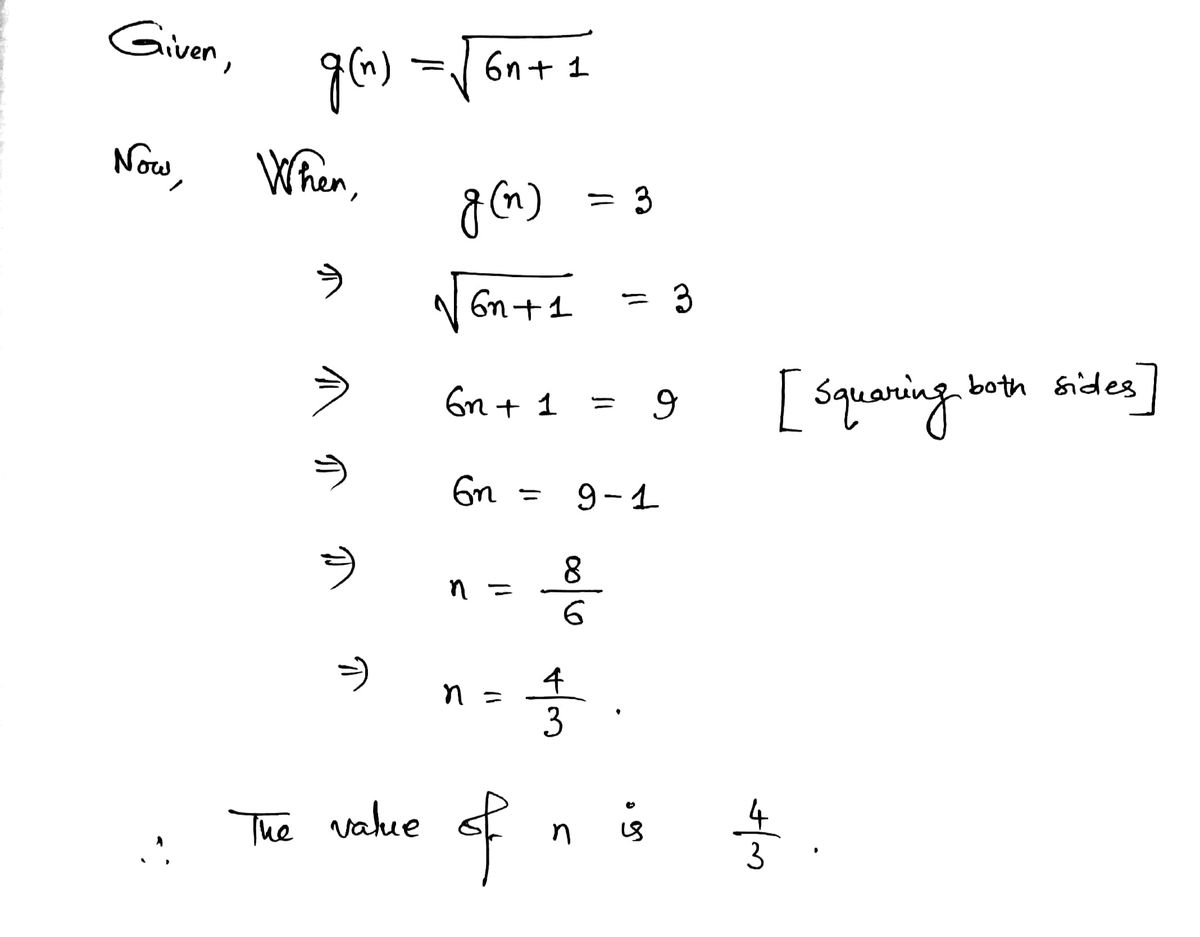 Given, g(n) = √(6n + 1)
Now, When, g(n) = 3
⇒ √(6n + 1) = 3
⇒ 6n + 1 = 9 [squaring both sides]
⇒ 6n = 9 - 1
⇒ n = 8/6
⇒ n = 4/3.
∴ The value of n is 4/3.